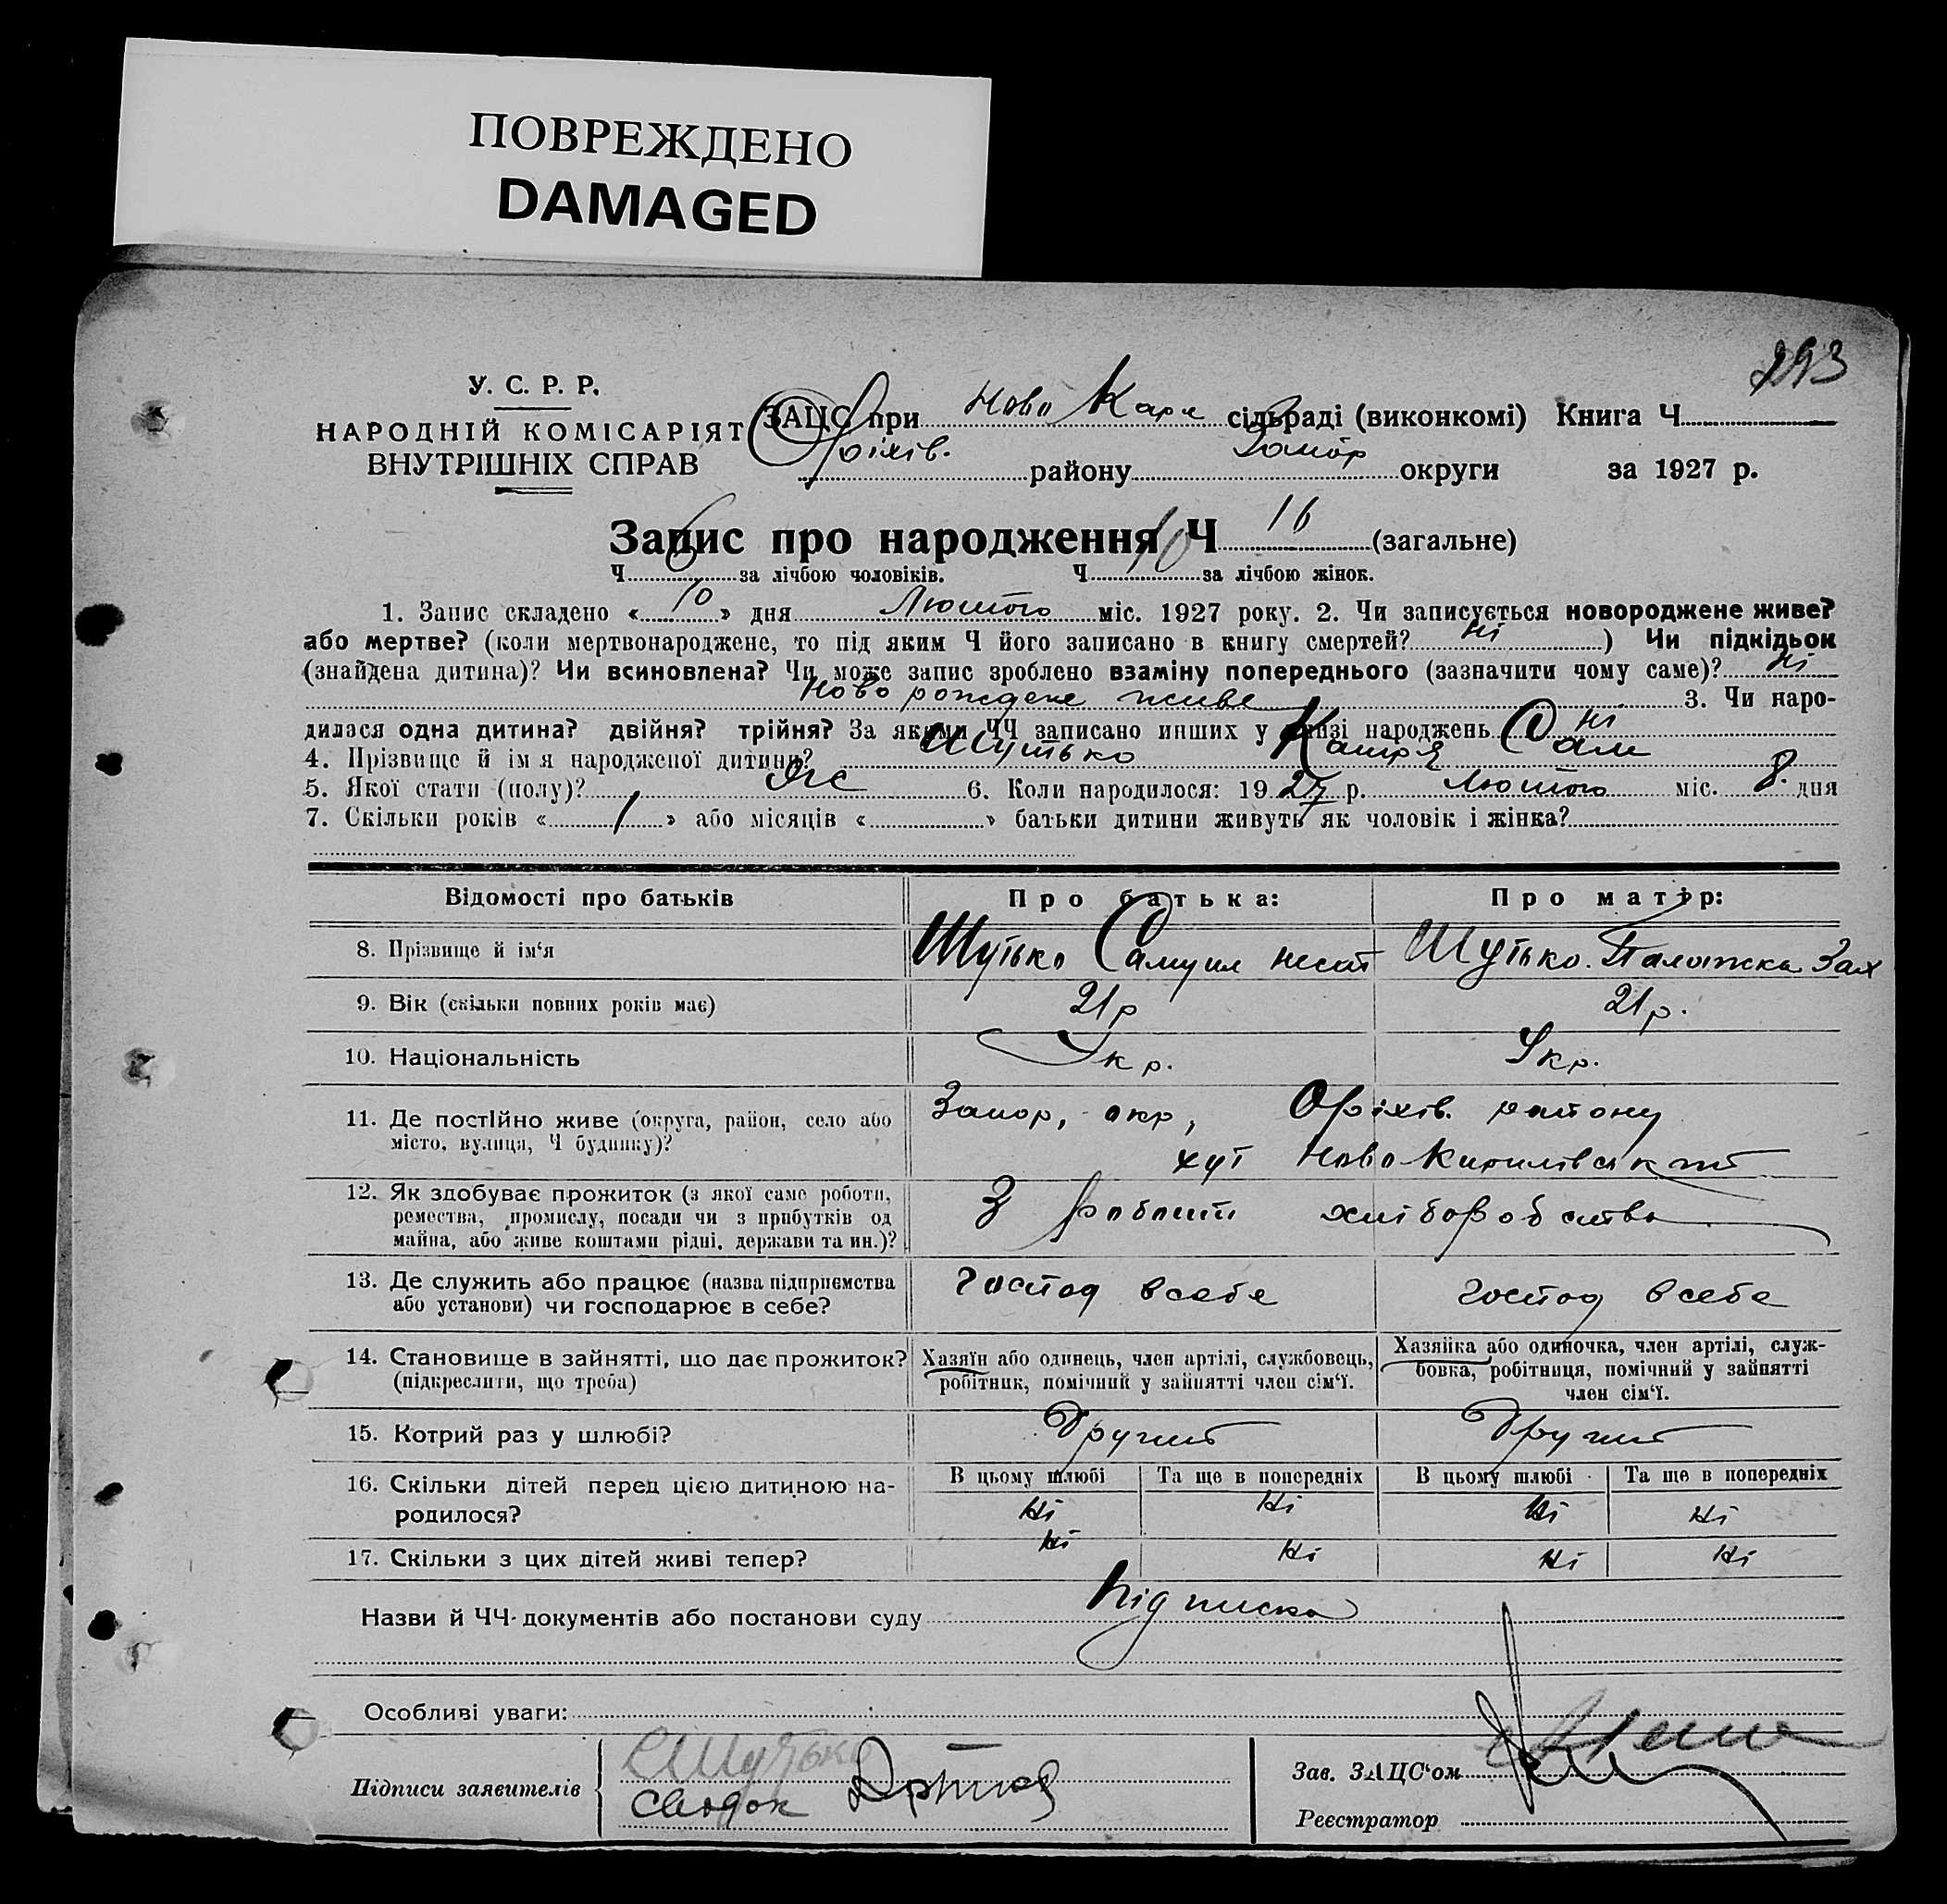 ПОВРЕЖДЕНО
DAMAGED
293
У. С. Р. Р.
НАРОДНІЙ КОМІСАРІЯТ
ВНУТРІШНІХ СПРАВ
ЗАЦС при Ново Кари сільраді (виконкомі) Книга Ч
Оріхів. району Запор округи за 1927 р.
Запис про народження Ч 16 (загальне)
Ч 6 за лічбою чоловіків. Ч 10 за лічбою жінок.
1. Запис складено « 10 » дня Лютого міс. 1927 року. 2. Чи записується новороджене живе?
або мертве? (коли мертвонароджене, то під яким Ч його записано в книгу смертей? Ні ) Чи підкідьок
(знайдена дитина)? Чи всиновлена? Чи може запис зроблено взаміну попереднього (зазначити чому саме)? Ні
Ново рождене живе 3. Чи наро-
дилася одна дитина? двійня? трійня? За якими ЧЧ записано инших у книзі народжень Ні
4. Прізвище й ім'я народженої дитини? Шутько Катря Сам
5. Якої стати (полу)? Ж 6. Коли народилося: 19 27 р. Лютого міс. 8. дня
7. Скільки років « 1 » або місяців « » батьки дитини живуть як чоловік і жінка?
Відомості про батьків Про батька: Про матір:
8. Прізвище й ім'я Шутько Самуил Шутько. Палажка Зах
9. Вік (скільки повних років має) 21 р 21 р.
10. Національність Укр. Укр.
11. Де постійно живе (округа, район, село або Запор, окр, Оріхів. району
місто, вулиця, Ч будинку)? хут Ново Кирилівський
12. Як здобуває прожиток (з якої саме роботи, З роботи хліборобства
ремества, промислу, посади чи з прибутків од
майна, або живе коштами рідні, держави та ин.)?
13. Де служить або працює (назва підприємства Господ в себе Господ в себе
або установи) чи господарює в себе?
14. Становище в зайнятті, що дає прожиток? Хазяїн або одинець, член артілі, службовець, Хазяйка або одиночка, член артілі, служ-
(підкреслити, що треба) робітник, помічний у зайнятті член сім'ї. бовка, робітниця, помічний у зайнятті
член сім'ї.
15. Котрий раз у шлюбі? Другий Другий
16. Скільки дітей перед цією дитиною на- В цьому шлюбі Та ще в попередніх В цьому шлюбі Та ще в попередніх
родилося? Ні Ні Ні Ні
17. Скільки з цих дітей живі тепер? Ні Ні Ні Ні
Назви й ЧЧ документів або постанови суду Підписка
Особливі уваги:
Підписи заявителів СШутько
Свідок
Зав. ЗАЦС'ом
Реєстратор